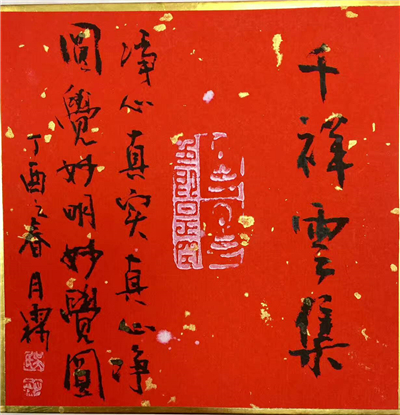 千祥雲集
淨心真实真心净
圓覺妙明妙覺圓
丁酉之春月霖